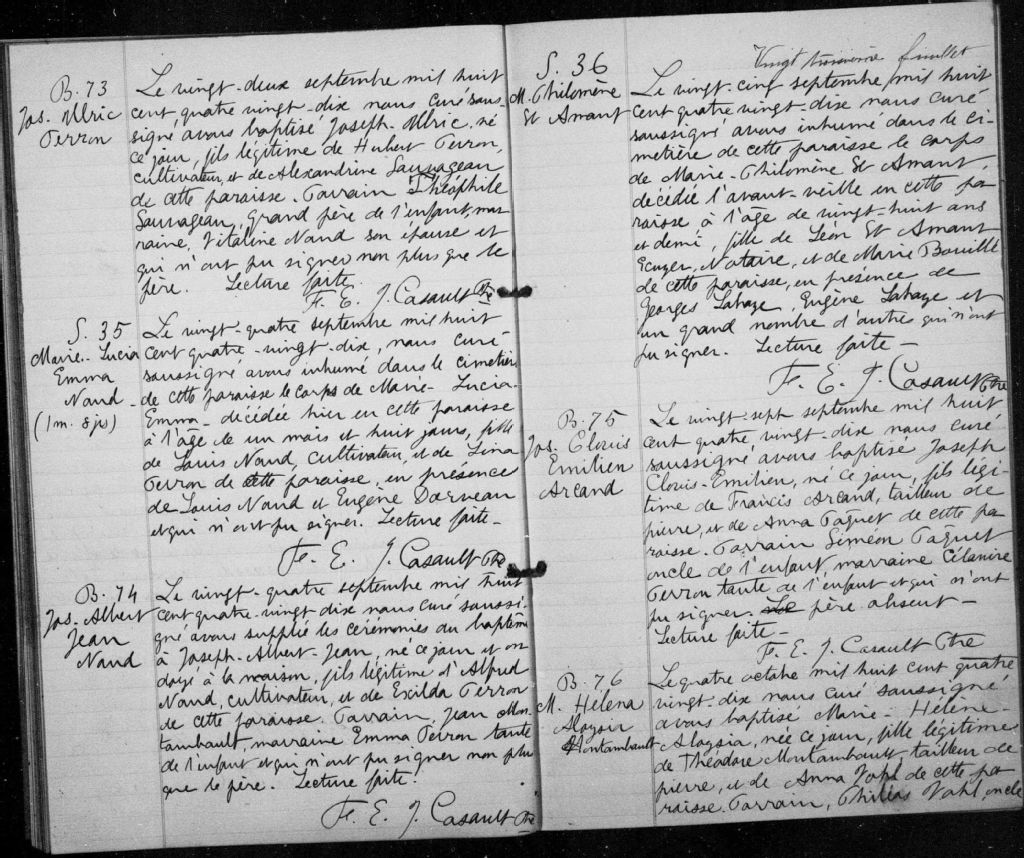 B. 73
Jos. Ulric
Perron
Le vingt-deux septembre mil huit
cent quatre vingt-dix nous curé sous-
signé avons baptisé Joseph-Ulric, né
ce jour, fils légitime de Hubert Perron,
cultivateur, et de Alexandrine Sauvageau
de cette paroisse. Parrain Théophile
Sauvageau, Grand père de l'enfant, mar-
raine, Vitaline Naud son épouse et
qui n'ont pu signer non plus que le
père. Lecture faite
F. E. J. Casault Ptre
S. 35
Marie-Lucia
Emma
Naud
(1 m. 8 js)
Le vingt-quatre septembre mil huit-
cent quatre-vingt-dix, nous curé
soussigné avons inhumé dans le cimetière
de cette paroisse le corps de Marie-Lucia-
Emma - décédée hier en cette paroisse
à l'âge de un mois et huit jours, fille
de Louis Naud, cultivateur, et de Lina
Perron de cette paroisse, en présence
de Louis Naud et Eugène Darveau
et qui n'ont pu signer. Lecture faite -
F. E. J. Casault Ptre
B. 74
Jos. Albert
Jean
Naud
Le vingt-quatre septembre mil huit
cent quatre-vingt dix nous curé soussi-
gné avons supplié les cérémonies du baptême
à Joseph-Albert-Jean, né ce jour et on
doyé à la maison, fils légitime d'Alfred
Naud, cultivateur, et de Exilda Perron
de cette paroisse. Parrain, Jean Mon
tambault, marraine Emma Perron tante
de l'enfant et qui n'ont pu signer non plus
que le père. Lecture faite.
F. E. J. Casault Ptre
Vingt troisième feuillet
S. 36
M. Philomène
St Amant
Le vingt-cinq septembre mil huit
cent quatre vingt-dix nous curé
soussigné avons inhumé dans le ci-
metière de cette paroisse le corps
de Marie-Philomène St Amant,
décédée l'avant-veille en cette pa
roisse à l'âge de vingt-huit ans
et demi, fille de Léon St Amant
Ecuyer, Notaire, et de Marie Bouillé
de cette paroisse, en présence de
Georges Lahaye, Eugène Lahaye et
un grand nombre d'autres qui n'ont
pu signer. Lecture faite -
F. E. J. Casault Ptre
B. 75
Jos. Clovis
Emilien
Arcand
Le vingt-sept septembre mil huit
cent quatre vingt-dix nous curé
soussigné avons baptisé Joseph
Clovis-Emilien, né ce jour, fils légi-
time de Francis Arcand, tailleur de
pierre, et de Anna Paquet de cette pa
roisse. Parrain Siméon Paquet
oncle de l'enfant, marraine Célanire
Perron tante de l'enfant et qui n'ont
pu signer. père absent -
Lecture faite -
F. E. J. Casault Ptre
B. 76
M. Helena
Aloysia
Montambault
Le quatre octobre mil huit cent quatre
vingt-dix nous curé soussigné
avons baptisé Marie-Hélène-
Aloysia, née ce jour, fille légitime
de Théodore Montambault tailleur de
pierre, et de Anna Vohl de cette pa
roisse. Parrain, Philias Vohl, oncle